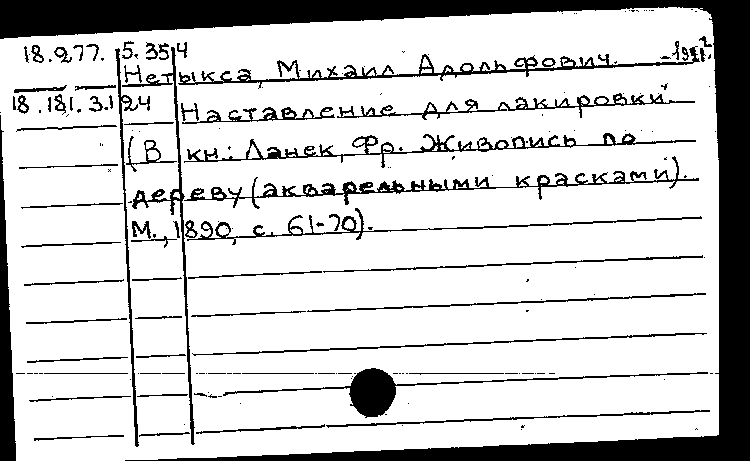 18.277.5.354
Нетыкса, Михаил Адольфович.
18.181.3.124 Наставление для лакировки.
(В кн.: Ланек, Фр. Живопись по
дереву (акварельными красками).
М., 1890, с. 61-70).